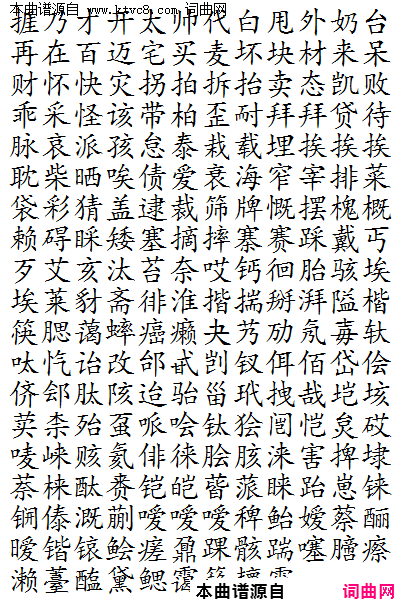 本曲谱源自 www.ktvc8.com 词曲网
捱乃才开太帅代白甩外奶台
再在百迈宅买麦坏块材来呆
财怀快灾拐拍拆抬卖态凯败
乖采怪该带柏歪耐拜拜贷待
脉哀派孩怠泰栽载埋挨挨挨
耽柴晒唉债爱衰海窄宰排菜
袋彩猜盖逮裁筛牌慨摆槐概
赖碍睬矮塞摘摔寨赛踩戴丐
歹艾亥汰苔奈哎钙徊胎骇埃
埃莱豺斋徘淮揩揣掰湃隘楷
筷腮蔼蟀癌癞夬艿劢氖毐轪
呔忾诒改邰甙剀钗佴佰岱侩
侪郐肽陔迨骀甾玳拽哉垲垓
荬柰殆虿哌哙钛狯闿恺炱砹
唛崃赅氦俳徕脍胲涞害捭埭
蔡梾酞赉铠皑蒈蒎睐跆崽铼
锎傣溉蒯嗳嗳嗳稗鲐嫒蔡酾
暧锴镱鲙瘥鼐踝骸踹噻膪瘵
濑薹醢黛鳃霭
本曲谱源自
词曲网